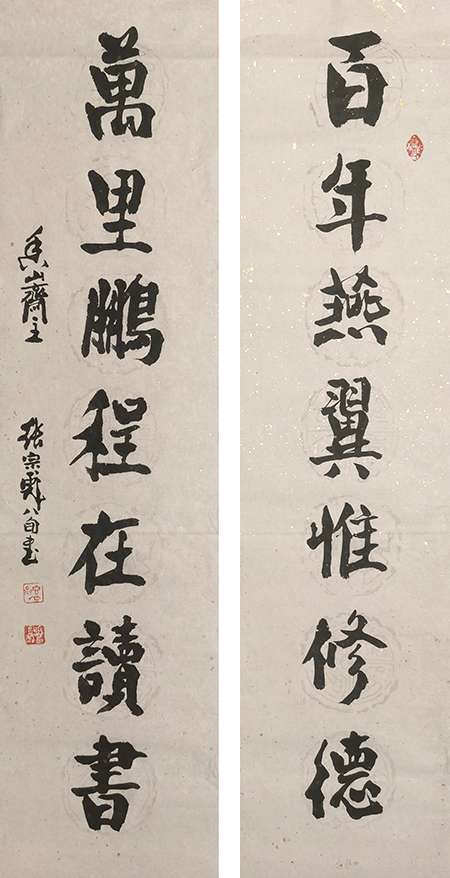 百年燕翼惟修德
萬里鵬程在讀書
香山齋主
張宗彪八旬書